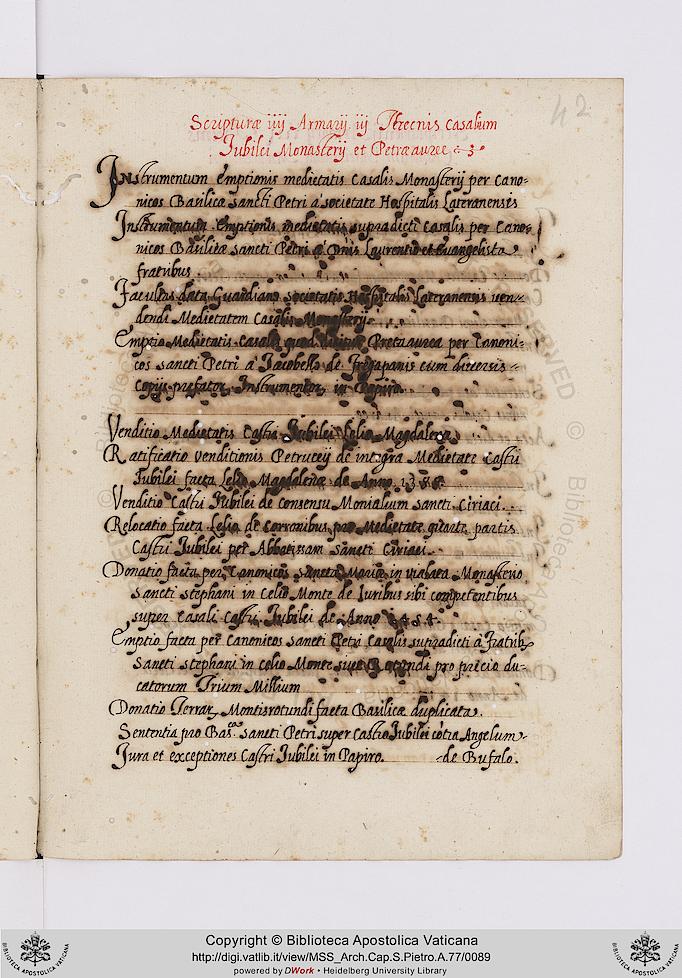 42
Scripturæ iiij Armarij iij Terecnis Casalium
Iubilei Monasterij et Petræ aureæ
Instrumentum Emptionis medietatis Casalis Monasterij per Cano-
nicos Basilicæ sancti Petri a societate Hospitalis Lateranensis
Instrumentum Emptionis medietatis supradicti Casalis per Cano-
nicos Basilicæ sancti Petri a Laurentio et Euangelista
fratribus
Facultas data Guardiano societatis Hospitalis Lateranensis uen-
dendi Medietatem Casalis Monasterij
Emptio Medietatis Casalis quod dicitur Preta aurea per Canoni-
cos sancti Petri a Iacobello de Fregapanis cum diuersis
Copijs in Papiro
Venditio Medietatis Castri Iubilei Lelio Magdalenæ
Ratificatio venditionis Petrucij de integra Medietate Castri
Iubilei facta Lelio Magdalenæ de Anno
Venditio Castri Iubilei de consensu Monialium sancti Ciriaci.
Relocatio facta Lelio de pro Medietate quartæ partis
Castri Iubilei per Abbatissam sancti Ciriaci
Donatio facta per Canonicos sanctæ Mariæ in uialata Monasterio
sancti stephani in Celio Monte de Iuribus sibi competentibus
super Casali Castri Iubilei de Anno
Emptio facta per Canonicos sancti Petri Casalis supradicti a
Sancti stephani in celio Monte siue Rotundi pro precio du-
catorum Trium Millium
Donatio Terrar Montisrotundi facta Basilicæ duplicata.
Sententia pro Bas.ca sancti Petri super Castro Iubilei cotra Angelum
Iura et exceptiones Castri Iubilei in Papiro. de Bufalo.
Copyright © Biblioteca Apostolica Vaticana
http://digi.vatlib.it/view/MSS_Arch.Cap.S.Pietro.A.77/0089
powered by DWork • Heidelberg University Library